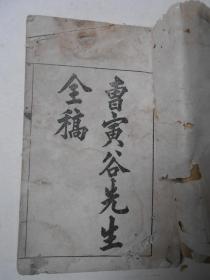 曹寅谷先生
全稿